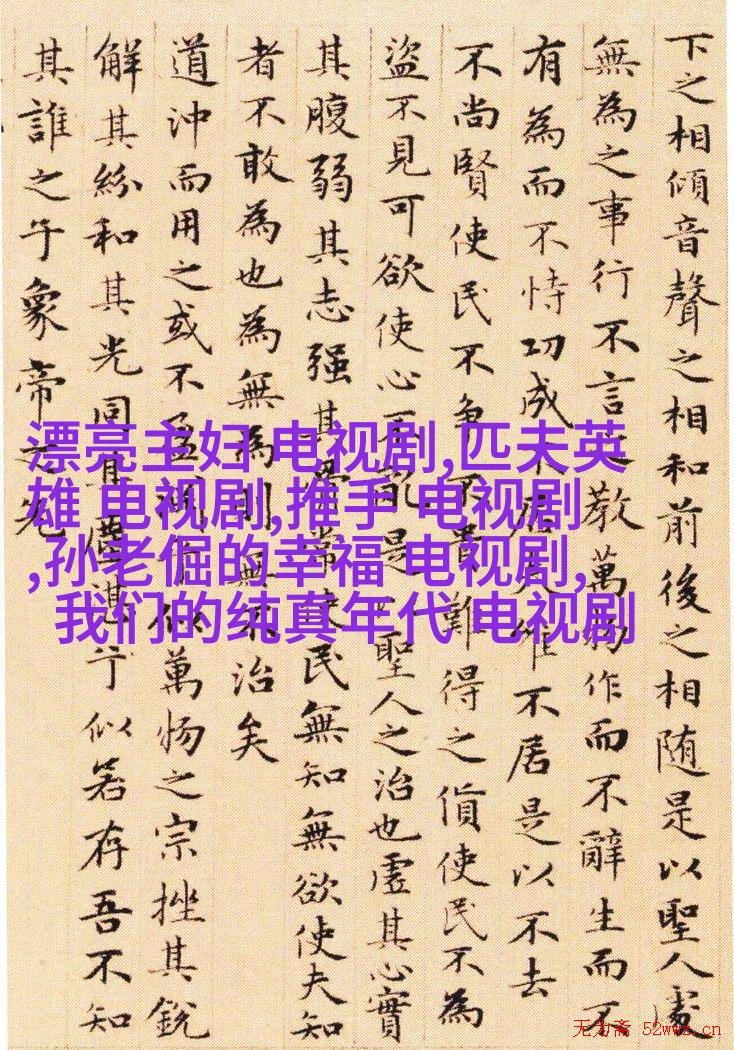 下之相傾音聲之相和前後之相随是以聖人處
無為之事行不言之教萬物作而不辭生而不
有為而不恃功成不居夫唯不居是以不去
不尚賢使民不争不貴難得之貨使民不為
盜不見可欲使心不乱是以聖人之治也虛其心實
其腹弱其志强其骨常使民無知無欲使夫知
者不敢為也為無為則無不治矣
道沖而用之或不盈淵似萬物之宗挫其銳
解其紛和其光同其塵湛兮似若存吾不知
其誰之子象帝之先
漂亮主妇 电视剧,匹夫英
雄 电视剧,推手 电视剧
,孙老倔的幸福 电视剧,
我们的纯真年代 电视剧
无为斋 52wwz.cn